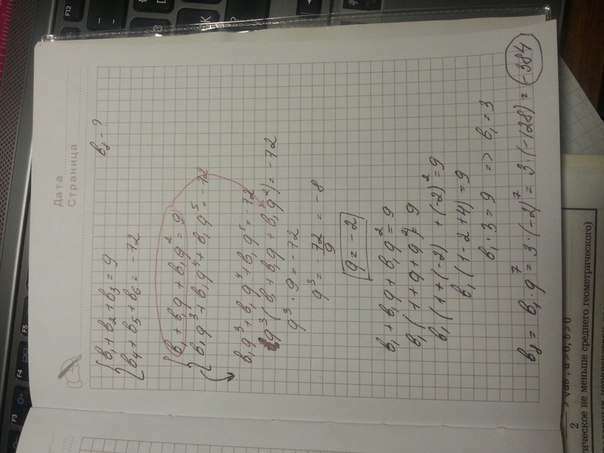 Дата
Страница
b₁ + b₂ + b₃ = 9
b₄ + b₅ + b₆ = -72
b₈ - ?
b₁ + b₁q + b₁q² = 9
b₁q³ + b₁q⁴ + b₁q⁵ = -72
b₁q³ + b₁q⁴ + b₁q⁵ = -72
q³(b₁ + b₁q + b₁q²) = -72
q³ · 9 = -72
q³ = -72/9 = -8
q = -2
b₁ + b₁q + b₁q² = 9
b₁(1 + q + q²) = 9
b₁(1 + (-2) + (-2)² = 9
b₁(1 - 2 + 4) = 9
b₁ · 3 = 9 => b₁ = 3
b₈ = b₁q⁷ = 3 · (-2)⁷ = 3 · (-128) = -384
2
√ab, a ≥ 0, b ≥ 0
ческое не меньше среднего геометрического)